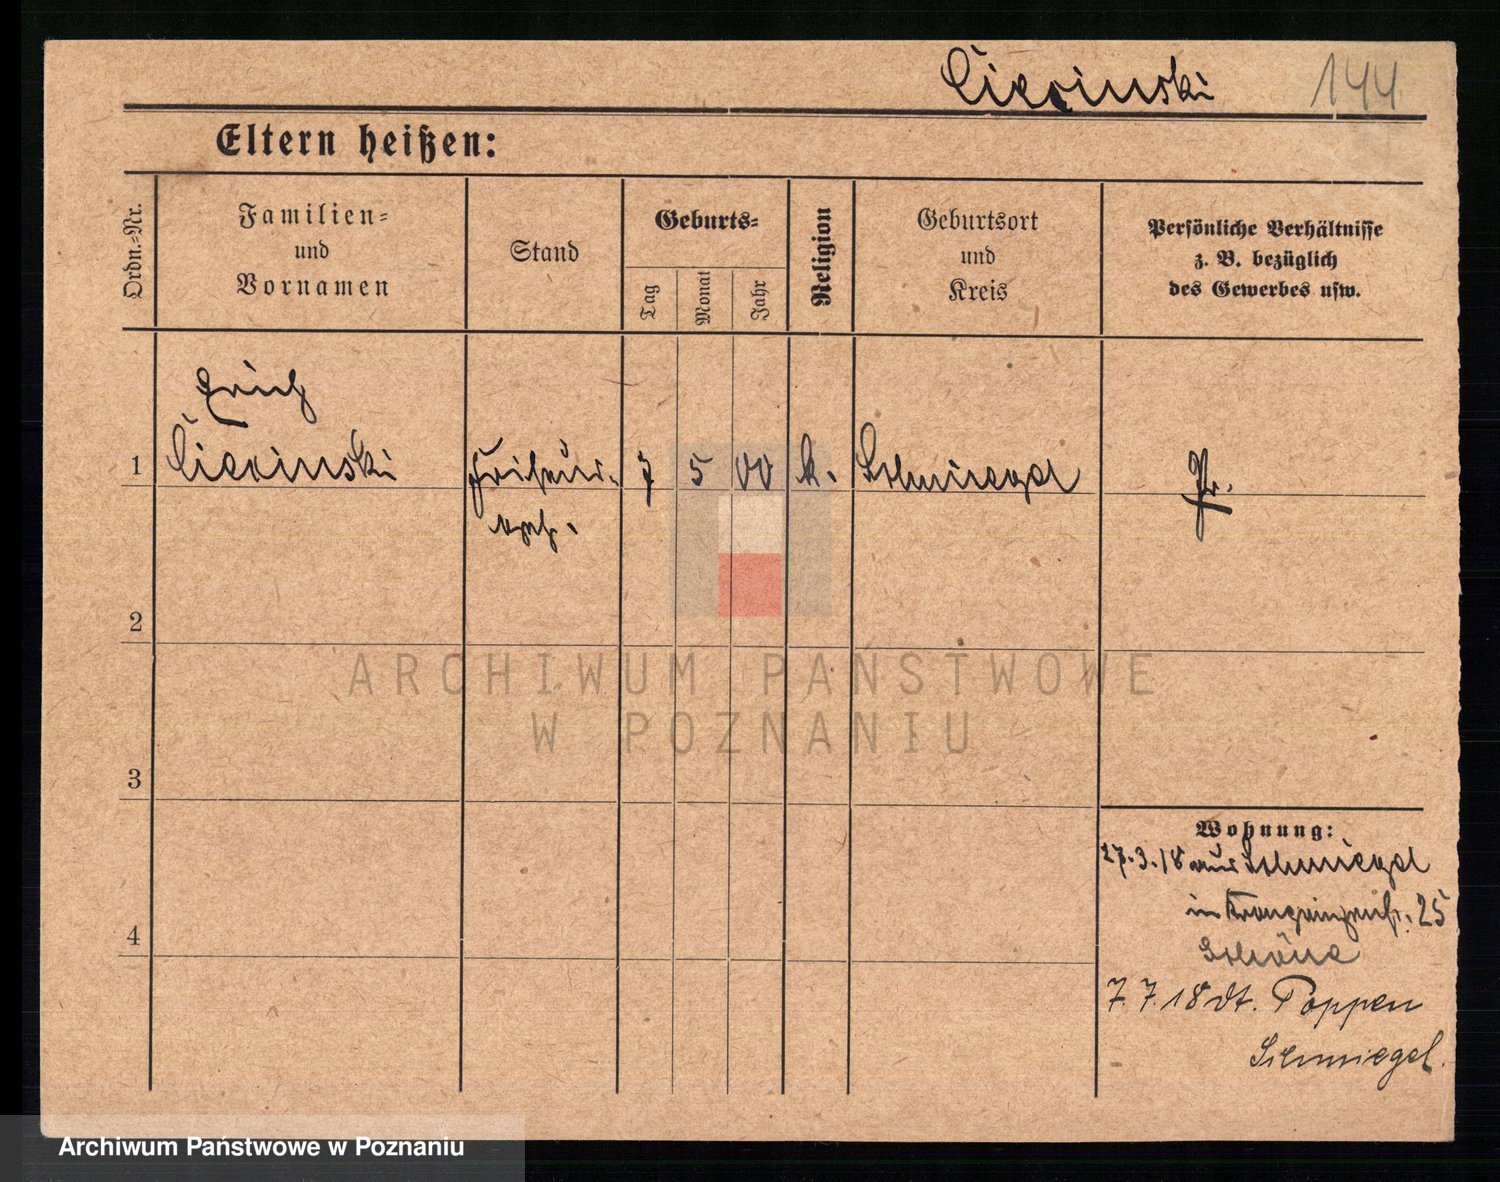 Ciecinski 144
Eltern heißen:
Ordn.=Nr.
Familien=
und
Vornamen
Stand
Geburts=
Tag
Monat
Jahr
Religion
Geburtsort
und
Kreis
Persönliche Verhältnisse
z. B. bezüglich
des Gewerbes usw.
Erich
1 Ciecinski Friseur- 7 5 00 k. Schmiegel Pr.
2
3
4
ARCHIWUM PAŃSTWOWE
W POZNANIU
Wohnung:
27.3.18 aus Schmiegel
in 25
Schöne
7.7.18 dt. Poppen
Schmiegel.
Archiwum Państwowe w Poznaniu